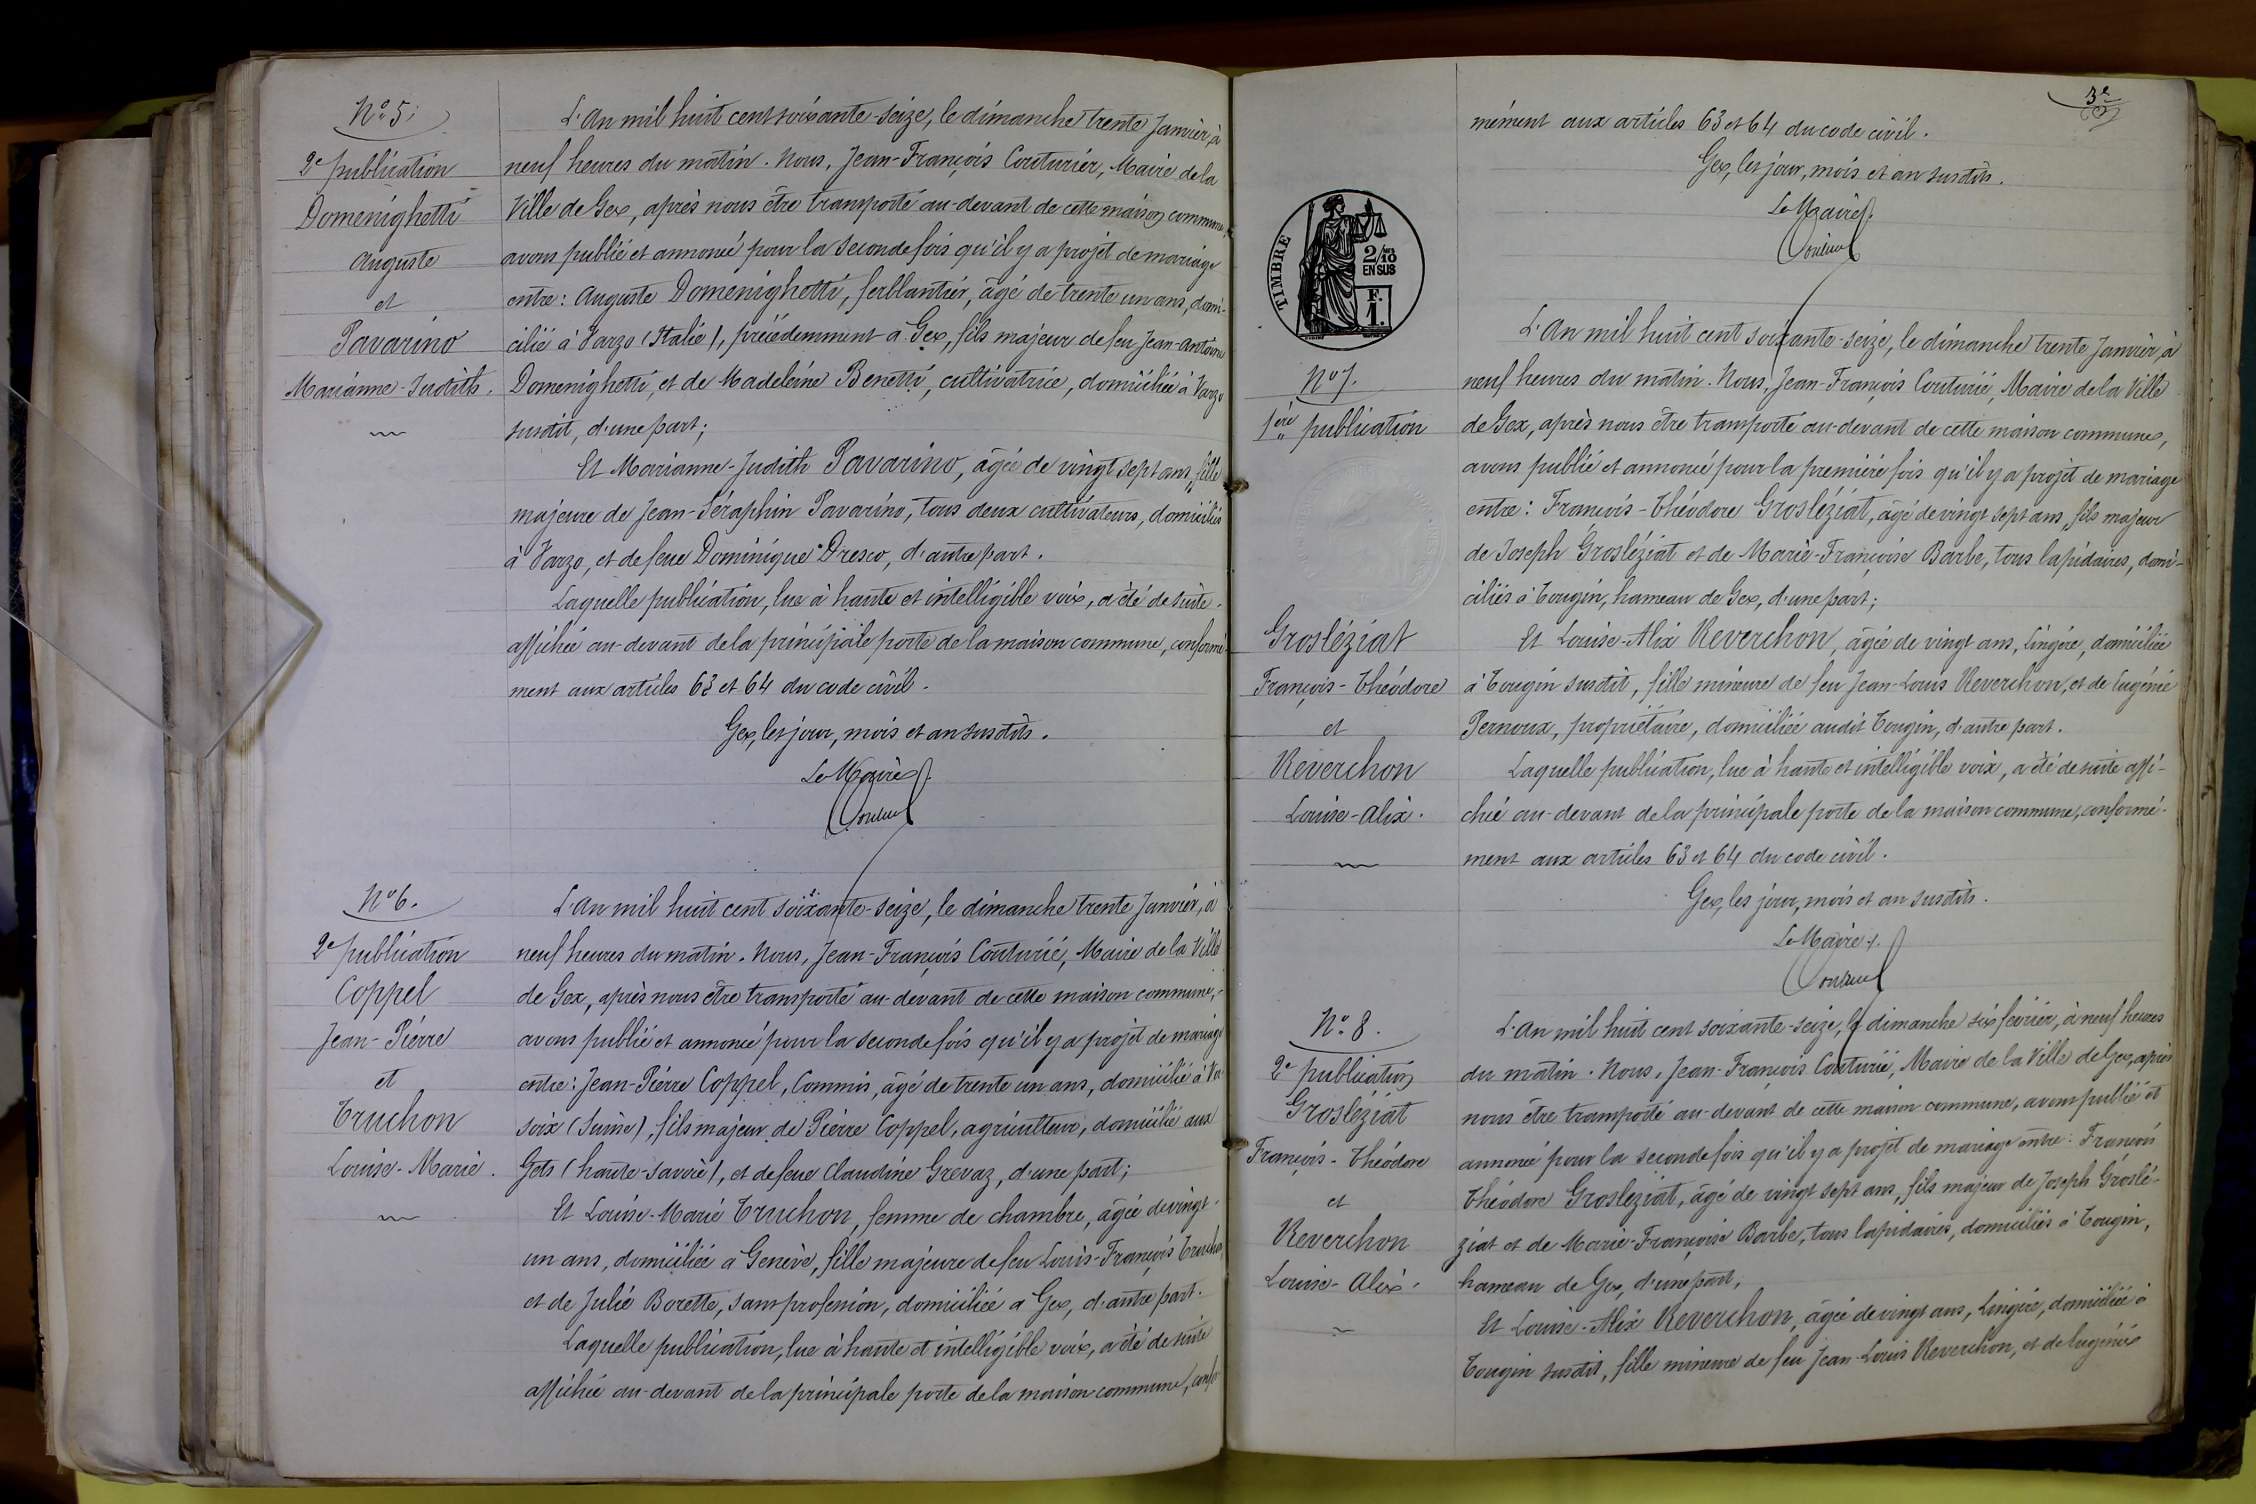 N° 5.
2e publication
Domenighetti
Auguste
et
Pavarino
Marianne-Judith.
L'An mil huit cent soixante-seize, le dimanche trente Janvier, à
neuf heures du matin. Nous, Jean-François Couturier, Maire de la
Ville de Gex, après nous être transporté au-devant de cette maison commune,
avons publié et annoncé pour la seconde fois qu'il y a projet de mariage
entre: Auguste Domenighetti, ferblantier, âgé de trente un ans, domi-
cilié à Varzo (Italie), précédemment à Gex, fils majeur de feu Jean-Antoine
Domenighetti, et de Madeleine Benetti, cultivatrice, domiciliée à Varzo
susdit, d'une part;
Et Marianne-Judith Pavarino, âgée de vingt sept ans, fille
majeure de Jean-Séraphin Pavarino, tous deux cultivateurs, domiciliés
à Varzo, et de feue Dominique Dresco, d'autre part.
Laquelle publication, lue à haute et intelligible voix, a été de suite
affichée au-devant de la principale porte de la maison commune, conformé-
ment aux articles 63 et 64 du code civil.
Gex, les jour, mois et an susdits.
Le Maire
N° 6.
2e publication
Coppel
Jean-Pierre
et
Truchon
Louise-Marie.
L'An mil huit cent soixante-seize, le dimanche trente Janvier, à
neuf heures du matin. Nous, Jean-François Couturié, Maire de la Ville
de Gex, après nous être transporté au-devant de cette maison commune,
avons publié et annoncé pour la seconde fois qu'il y a projet de mariage
entre: Jean-Pierre Coppel, Commis, âgé de trente un ans, domicilié à Ver-
soix (Suisse), fils majeur de Pierre Coppel, agriculteur, domicilié aux
Gets (haute-Savoie), et de feue Claudine Grevaz, d'une part;
Et Louise-Marie Truchon, femme de chambre, âgée de vingt-
un ans, domiciliée à Genève, fille majeure de feu Louis-François Truchon,
et de Julie Borette, sans profession, domiciliée à Gex, d'autre part.
Laquelle publication, lue à haute et intelligible voix, a été de suite
affichée au-devant de la principale porte de la maison commune, confor-
3e
mément aux articles 63 et 64 du code civil.
Gex, les jour, mois et an susdits.
Le Maire
TIMBRE
2/10
EN SUS
F.
1.
N° 7.
1ère publication
Grosléziat
François-Théodore
et
Reverchon
Louise-Alix.
L'An mil huit cent soixante-seize, le dimanche trente Janvier, à
neuf heures du matin. Nous, Jean-François Couturié, Maire de la Ville
de Gex, après nous être transporté au-devant de cette maison commune,
avons publié et annoncé pour la première fois qu'il y a projet de mariage
entre: François-Théodore Grosléziat, âgé de vingt sept ans, fils majeur
de Joseph Grosléziat et de Marie-Françoise Barbe, tous lapidaires, domi-
ciliés à Tougin, hameau de Gex, d'une part;
Et Louise-Alix Reverchon, âgée de vingt ans, lingère, domiciliée
à Tougin susdit, fille mineure de feu Jean-Louis Reverchon, et de Eugénie
Pernoux, propriétaire, domiciliée audit Tougin, d'autre part.
Laquelle publication, lue à haute et intelligible voix, a été de suite affi-
chée au-devant de la principale porte de la maison commune, conformé-
ment aux articles 63 et 64 du code civil.
Gex, les jour, mois et an susdits.
Le Maire
N° 8.
2e publication
Grosléziat
François-Théodore
et
Reverchon
Louise-Alix.
L'An mil huit cent soixante-seize, le dimanche six février, à neuf heures
du matin. Nous, Jean-François Couturié, Maire de la Ville de Gex, après
nous être transporté au-devant de cette maison commune, avons publié et
annoncé pour la seconde fois qu'il y a projet de mariage entre: François
Théodore Grosléziat, âgé de vingt sept ans, fils majeur de Joseph Groslé-
ziat et de Marie-Françoise Barbe, tous lapidaires, domiciliés à Tougin,
hameau de Gex, d'une part,
Et Louise-Alix Reverchon, âgée de vingt ans, lingère, domiciliée à
Tougin susdit, fille mineure de feu Jean-Louis Reverchon, et de Eugénie